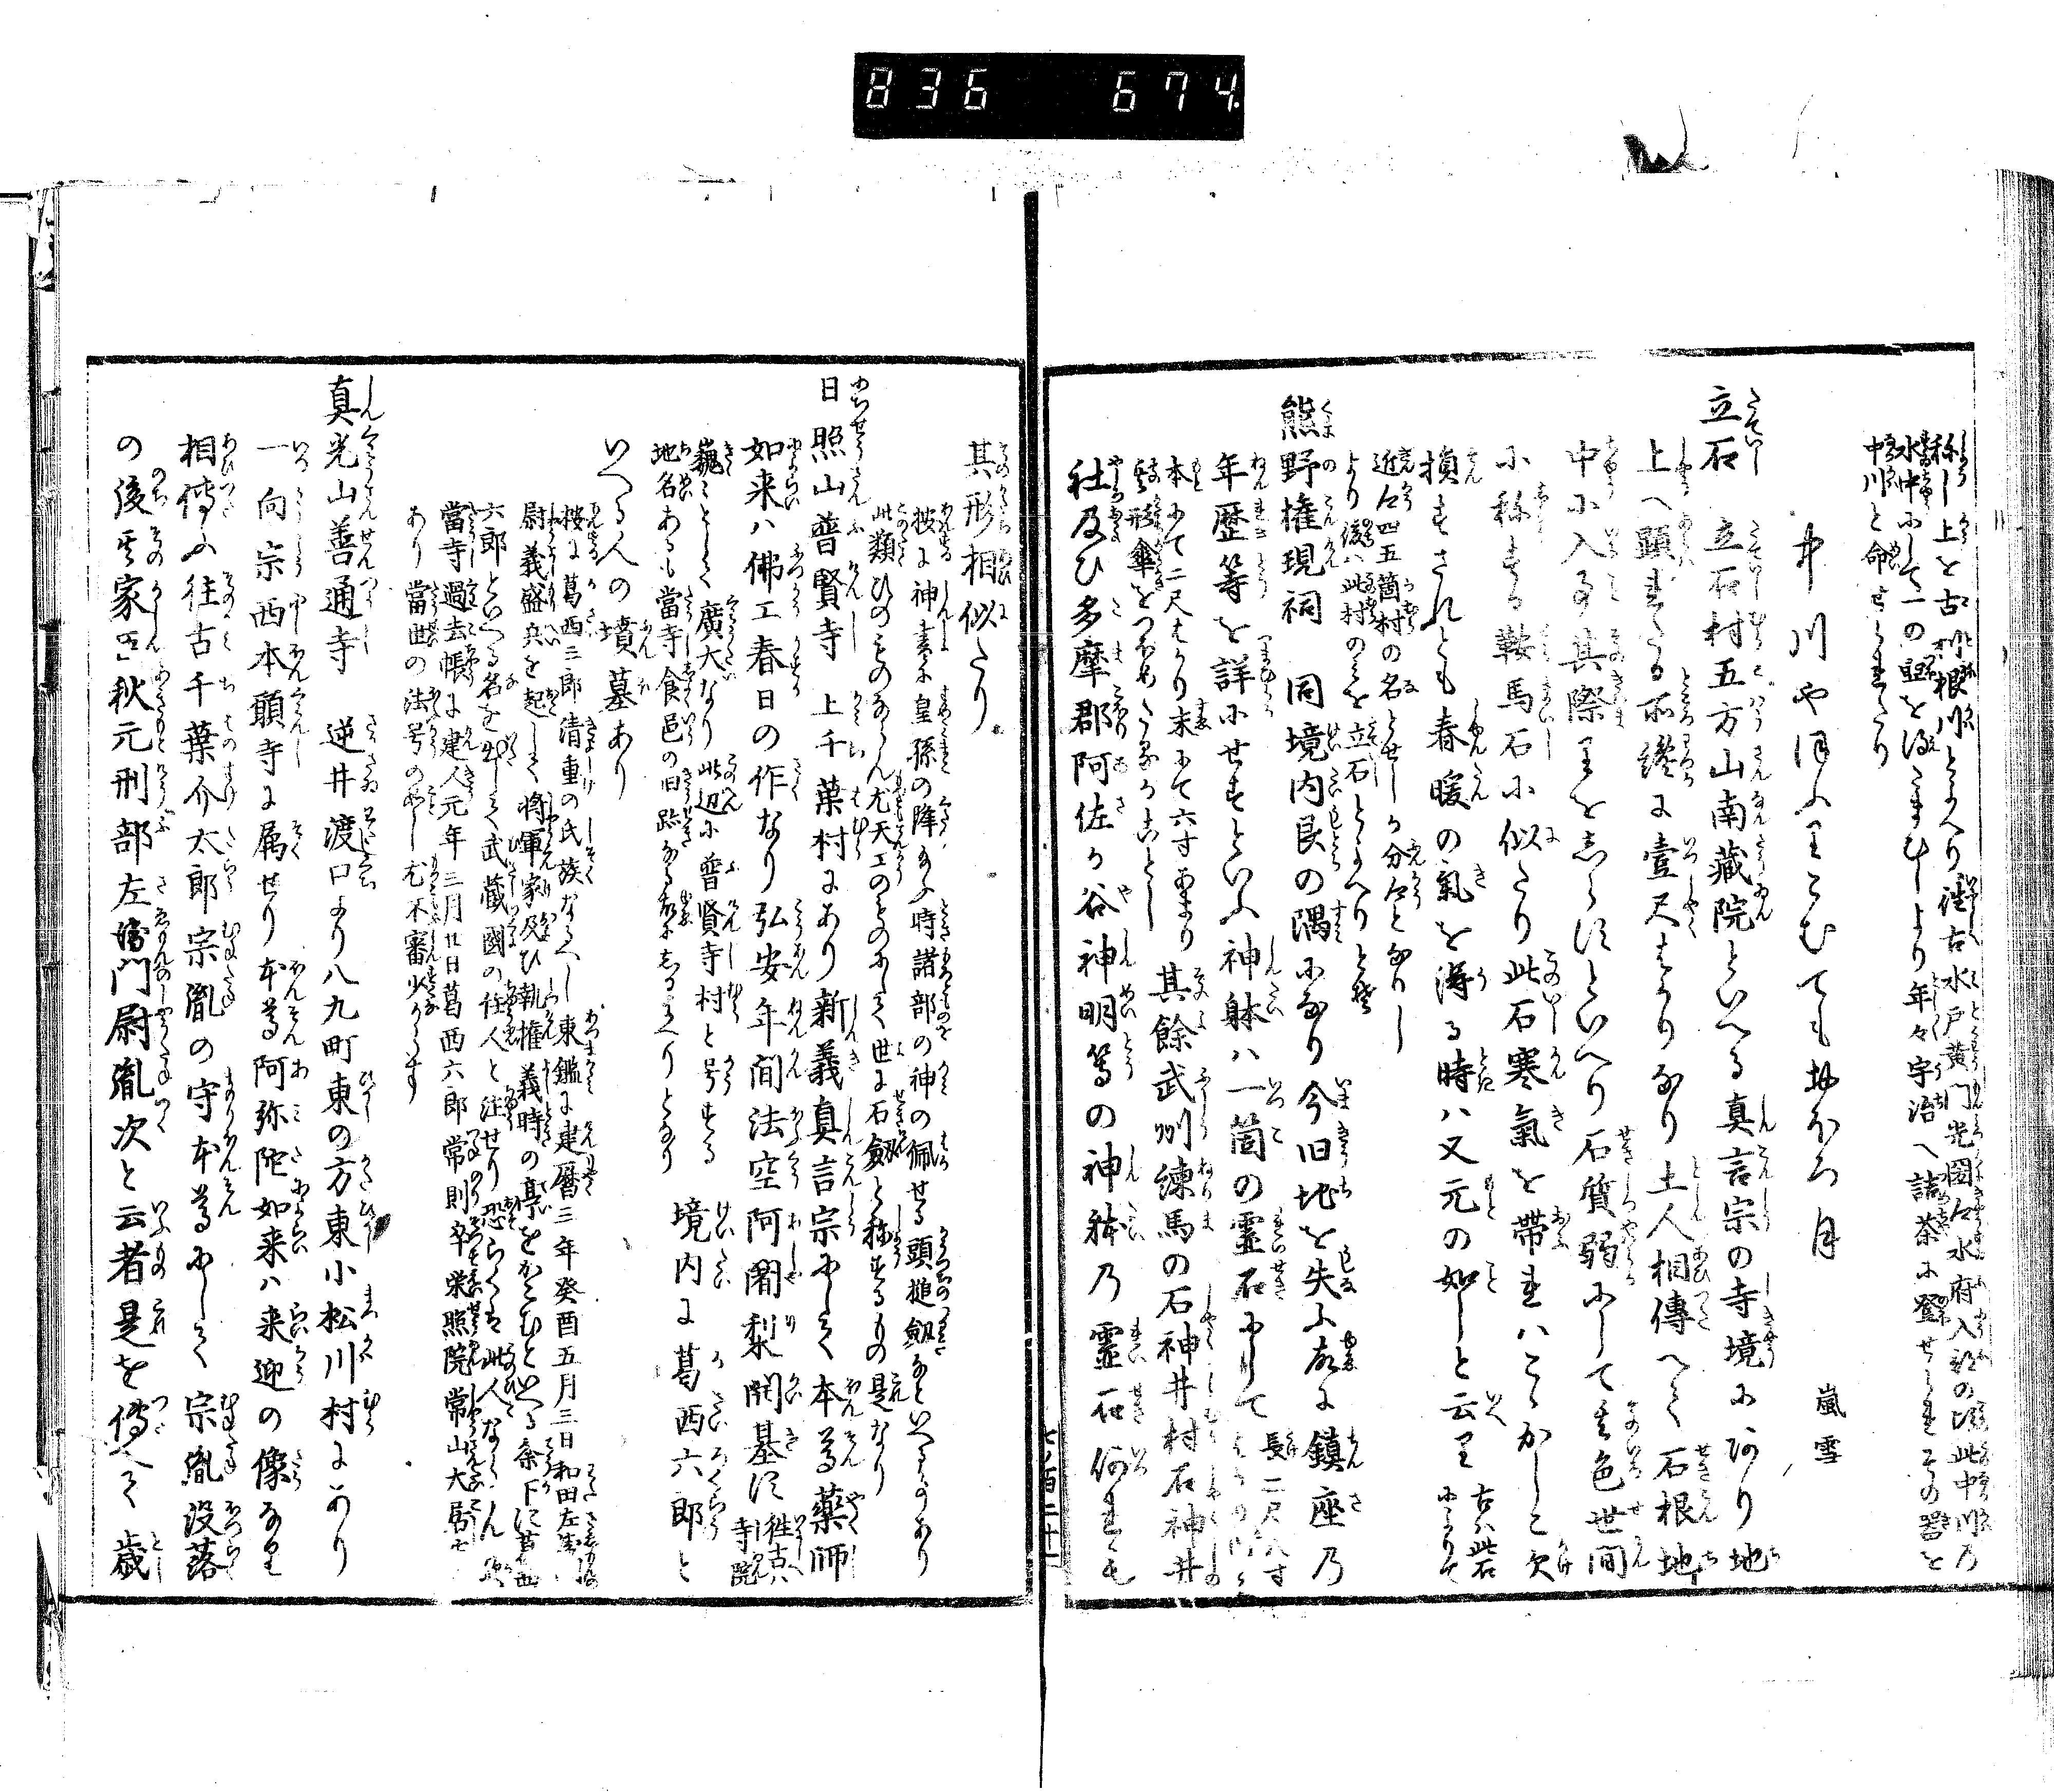 836 674.
称し上を古利根川とよへり往古水戸黄門光圀公水府入部の頃此中川乃
水中にして一の瓶を得たまひしより年々宇治へ詰茶に登せられその器を
中川と命せられたり
中川やほふりこむても朧月 嵐雪
立石 立石村五方山南蔵院といへる真言宗の寺境にあり地
上へ顕るゝ所纔に壹尺はかりなり土人相傳へて石根地
中に入事其際りをしらすといへり石質弱にして其色世間
に称する鞍馬石に似たり此石寒氣を帯れハこゝかしこ欠
損すされとも春暖の氣を得る時ハ又元の如しと云り 古ハ此石
近々四五箇村の名とせしか分々となりし
より後ハ此村のみを立石とよへりとそ
熊野権現祠 同境内艮の隅にあり今旧地を失ふ故に鎮座乃
年歴等を詳にせすといふ神躰ハ一箇の霊石にして 長二尺八寸
本にて二尺はかり末にて六寸あまり 其餘武州練馬の石神井村石神井
社及ひ多摩郡阿佐か谷神明等の神躰乃霊石何れも
七ノ百二十一
其形相似たり
按に神書に皇孫の降なふ時諸部の神の佩せる頭槌劔なといへるあり
此類ひのものならん尤天工のものにして世に石劔と称するもの是なり
日照山普賢寺 上千葉村にあり新義真言宗にして本尊薬師
如来ハ佛工春日の作なり弘安年間法空阿闍梨開基す 往古ハ寺院
巍々として廣大なり此辺に普賢寺村と号する
地名あるも當寺食邑の旧跡なる故にしかいへりとなり 境内に葛西六郎と
いへる人の墳墓あり
按に葛西三郎清重の氏族なるへし東鑑に建暦三年癸酉五月三日和田左衛門
尉義盛兵を起して将軍家及ひ執権義時の亭をかこむといへる条下に葛西
六郎といへる名を出して武蔵國の住人と注せり恐らくは此人ならん歟
當寺過去帳に建仁元年三月廿日葛西六郎常則卒栄照院常山大居士と
あり當世の法号のことし尤不審少からす
真光山善通寺 逆井渡口より八九町東の方東小松川村にあり
一向宗西本願寺に属せり本尊阿弥陀如来ハ来迎の像なり
相傳ふ往古千葉介太郎宗胤の守本尊にして宗胤没落
の後其家臣秋元刑部左衛門尉胤次と云者是を傳へて歳